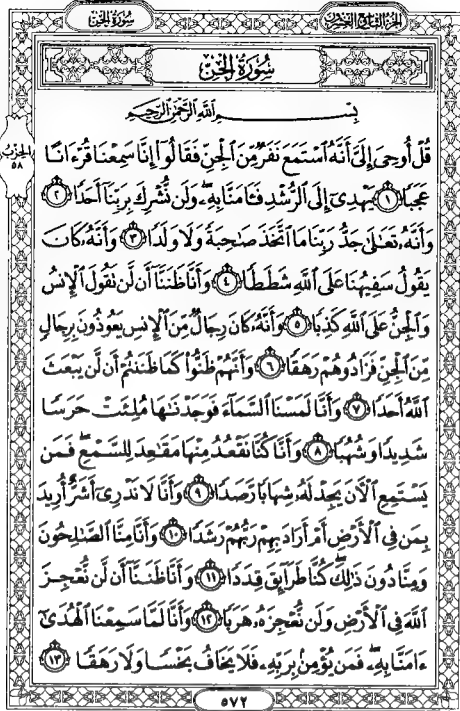 سُورَةُ الجِنّ
الجُزْءُ التَّاسِعُ وَالعِشْرُونَ
سُورَةُ الجِنِّ
بِسْمِ اللَّهِ الرَّحْمَٰنِ الرَّحِيمِ
الحِزْب
٥٨
قُلْ أُوحِىَ إِلَىَّ أَنَّهُ ٱسْتَمَعَ نَفَرٌ مِّنَ ٱلْجِنِّ فَقَالُوٓا۟ إِنَّا سَمِعْنَا قُرْءَانًا
عَجَبًا ١ يَهْدِىٓ إِلَى ٱلرُّشْدِ فَـَٔامَنَّا بِهِۦ ۖ وَلَن نُّشْرِكَ بِرَبِّنَآ أَحَدًا ٢
وَأَنَّهُۥ تَعَـٰلَىٰ جَدُّ رَبِّنَا مَا ٱتَّخَذَ صَـٰحِبَةً وَلَا وَلَدًا ٣ وَأَنَّهُۥ كَانَ
يَقُولُ سَفِيهُنَا عَلَى ٱللَّهِ شَطَطًا ٤ وَأَنَّا ظَنَنَّآ أَن لَّن تَقُولَ ٱلْإِنسُ
وَٱلْجِنُّ عَلَى ٱللَّهِ كَذِبًا ٥ وَأَنَّهُۥ كَانَ رِجَالٌ مِّنَ ٱلْإِنسِ يَعُوذُونَ بِرِجَالٍ
مِّنَ ٱلْجِنِّ فَزَادُوهُمْ رَهَقًا ٦ وَأَنَّهُمْ ظَنُّوا۟ كَمَا ظَنَنتُمْ أَن لَّن يَبْعَثَ
ٱللَّهُ أَحَدًا ٧ وَأَنَّا لَمَسْنَا ٱلسَّمَآءَ فَوَجَدْنَـٰهَا مُلِئَتْ حَرَسًا
شَدِيدًا وَشُهُبًا ٨ وَأَنَّا كُنَّا نَقْعُدُ مِنْهَا مَقَـٰعِدَ لِلسَّمْعِ ۖ فَمَن
يَسْتَمِعِ ٱلْـَٔانَ يَجِدْ لَهُۥ شِهَابًا رَّصَدًا ٩ وَأَنَّا لَا نَدْرِىٓ أَشَرٌّ أُرِيدَ
بِمَن فِى ٱلْأَرْضِ أَمْ أَرَادَ بِهِمْ رَبُّهُمْ رَشَدًا ١٠ وَأَنَّا مِنَّا ٱلصَّـٰلِحُونَ
وَمِنَّا دُونَ ذَٰلِكَ ۖ كُنَّا طَرَآئِقَ قِدَدًا ١١ وَأَنَّا ظَنَنَّآ أَن لَّن نُّعْجِزَ
ٱللَّهَ فِى ٱلْأَرْضِ وَلَن نُّعْجِزَهُۥ هَرَبًا ١٢ وَأَنَّا لَمَّا سَمِعْنَا ٱلْهُدَىٰٓ
ءَامَنَّا بِهِۦ ۖ فَمَن يُؤْمِنۢ بِرَبِّهِۦ فَلَا يَخَافُ بَخْسًا وَلَا رَهَقًا ١٣
٥٧٢